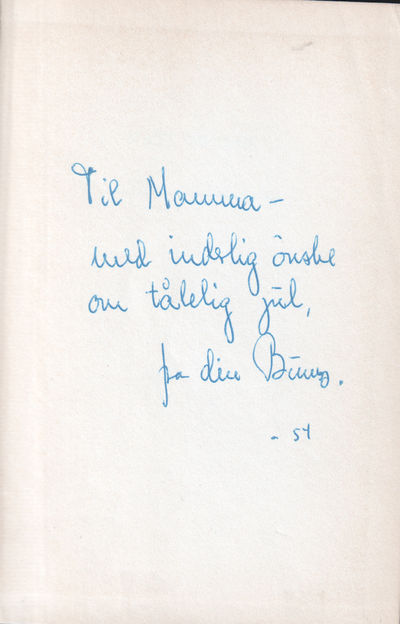 Til Mamma –
med inderlig önske
om tålelig jul,
fra din
- 54